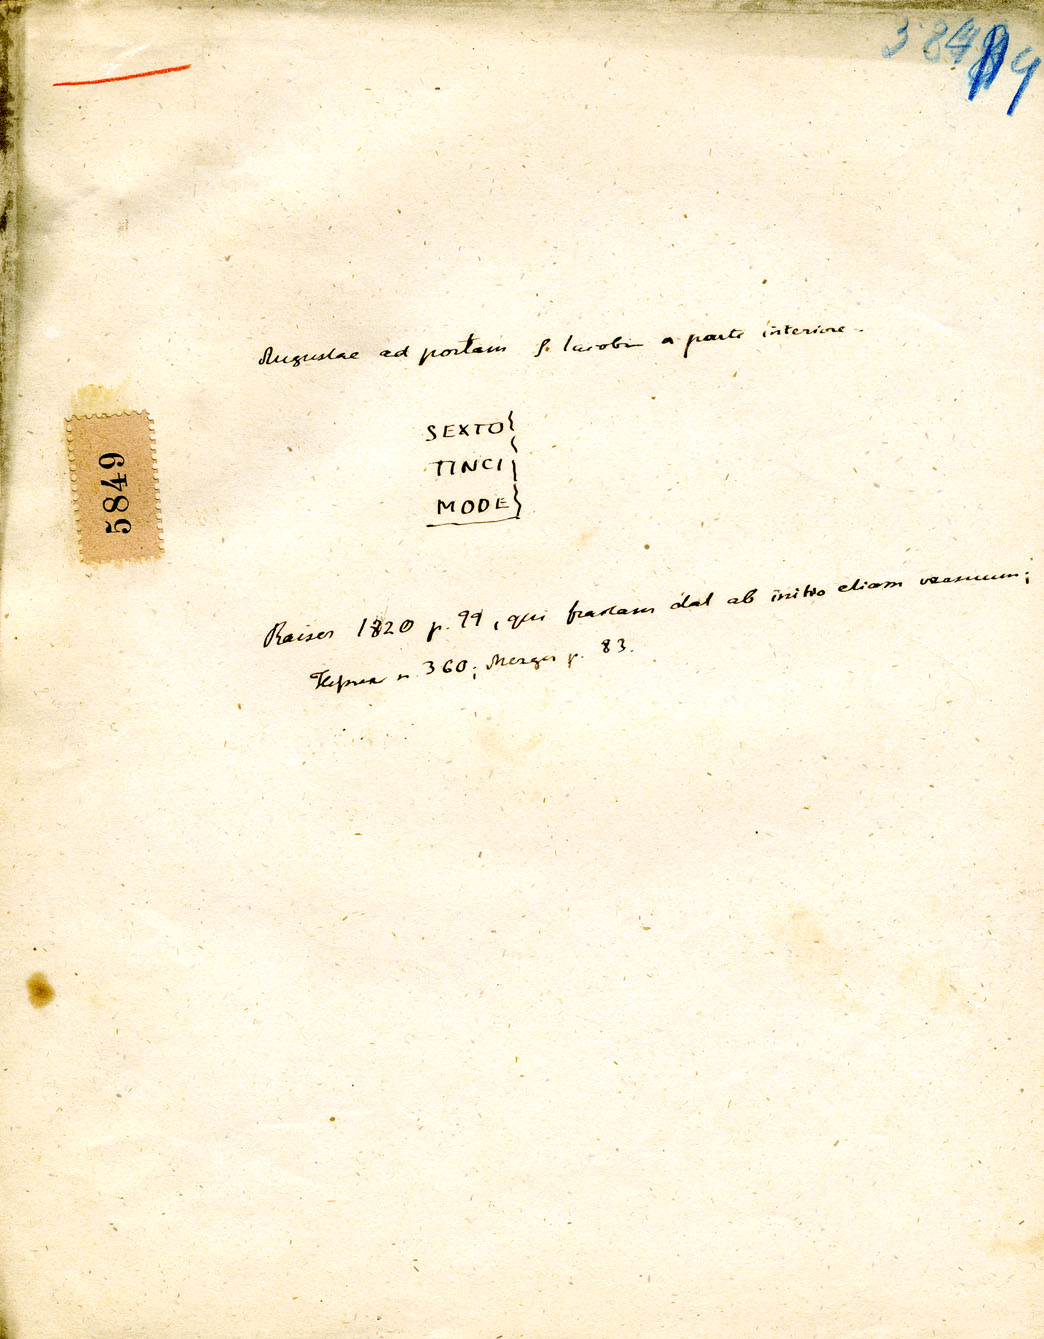 5849
Augustae ad portam S. Iacobi a parte interiore.
5849
SEXTO
TINCI
MODE
Raiser 1820 p. 99, qui fractam dat ab initio etiam
Hefner n. 360; Mezger p. 83.